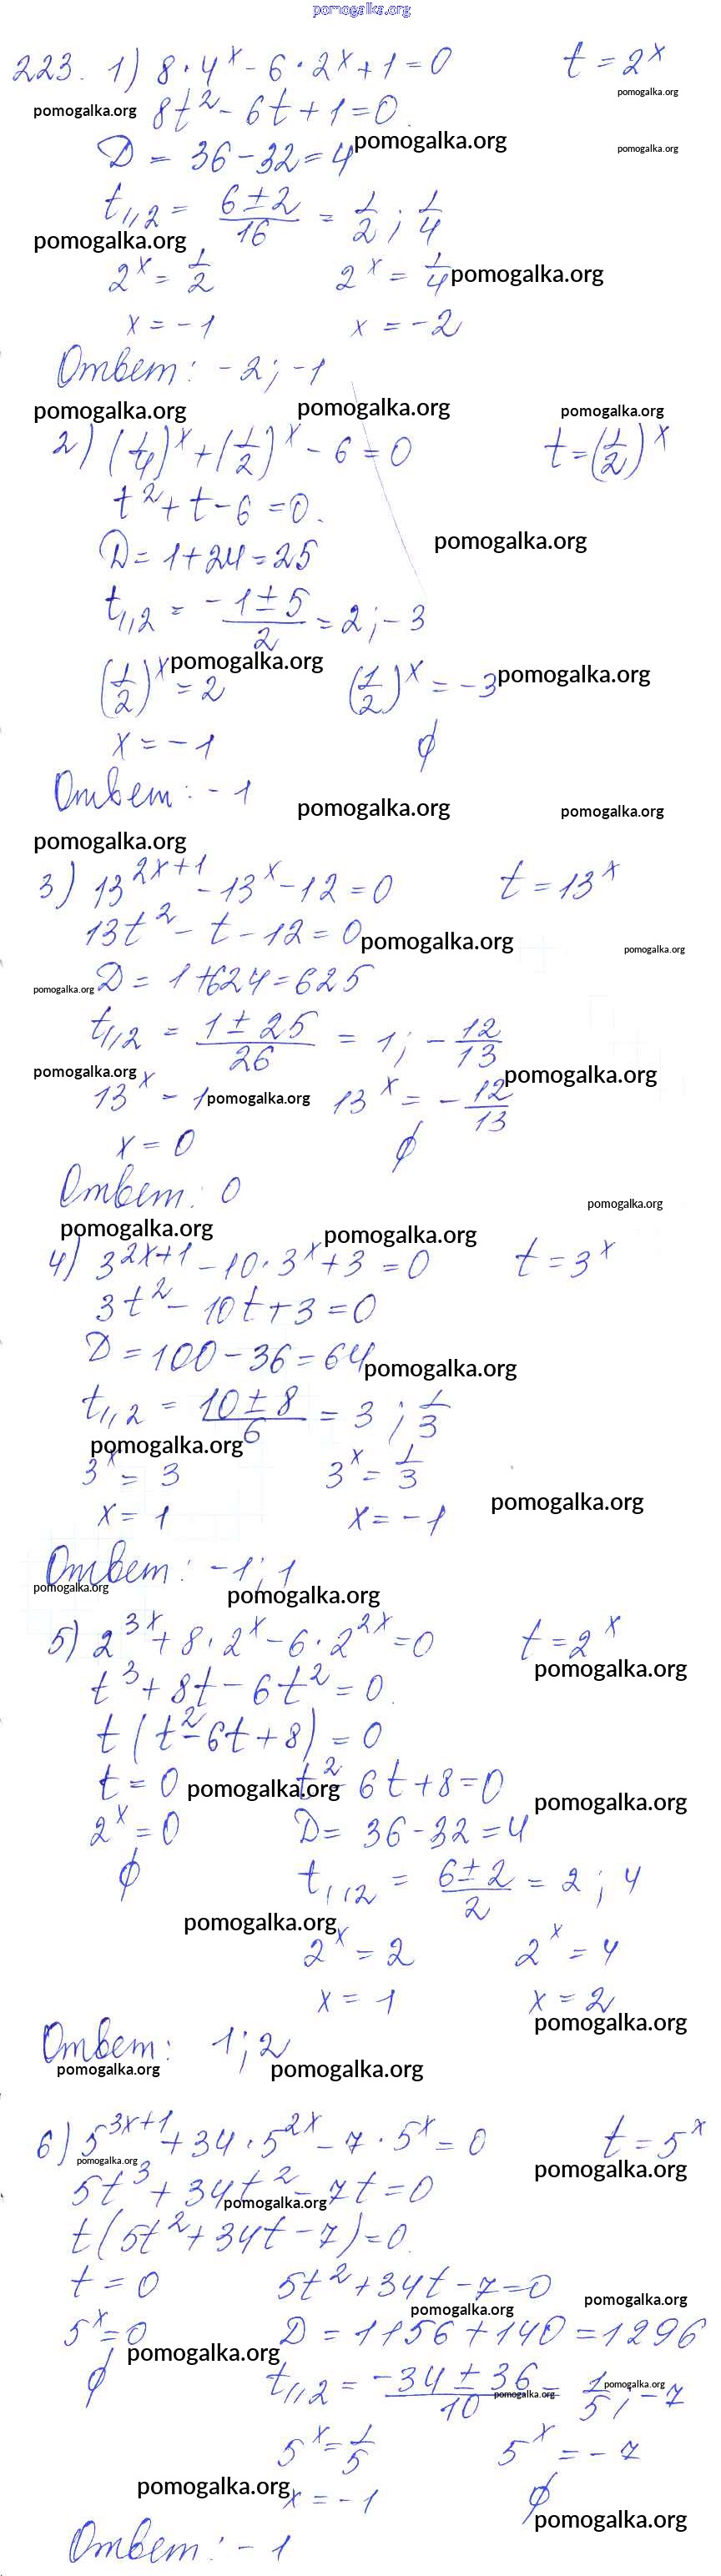 pomogalka.org
223. 1) 8·4^x - 6·2^x + 1 = 0    t = 2^x
pomogalka.org
pomogalka.org 8t² - 6t + 1 = 0.
D = 36 - 32 = 4 pomogalka.org pomogalka.org
t₁,₂ = (6±2)/16 = 1/2 ; 1/4
pomogalka.org
2^x = 1/2    2^x = 1/4 pomogalka.org
x = -1    x = -2
Ответ: -2; -1
pomogalka.org pomogalka.org pomogalka.org
2) (1/4)^x + (1/2)^x - 6 = 0    t = (1/2)^x
t² + t - 6 = 0.
D = 1 + 24 = 25 pomogalka.org
t₁,₂ = (-1±5)/2 = 2; -3
(1/2)^x = 2 pomogalka.org (1/2)^x = -3 pomogalka.org
x = -1    ∅
Ответ: -1
pomogalka.org pomogalka.org
pomogalka.org
3) 13^(2x+1) - 13^x - 12 = 0    t = 13^x
13t² - t - 12 = 0 pomogalka.org pomogalka.org
pomogalka.org D = 1 + 624 = 625
t₁,₂ = (1±25)/26 = 1; -12/13
pomogalka.org pomogalka.org
13^x - 1 pomogalka.org 13^x = -12/13
x = 0    ∅
Ответ: 0
pomogalka.org
pomogalka.org pomogalka.org
4) 3^(2x+1) - 10·3^x + 3 = 0    t = 3^x
3t² - 10t + 3 = 0
D = 100 - 36 = 64 pomogalka.org
t₁,₂ = (10±8)/6 = 3 ; 1/3
pomogalka.org
3^x = 3    3^x = 1/3
x = 1    x = -1 pomogalka.org
Ответ: -1; 1
pomogalka.org pomogalka.org
5) 2^(3x) + 8·2^x - 6·2^(2x) = 0    t = 2^x
pomogalka.org
t³ + 8t - 6t² = 0.
t(t² - 6t + 8) = 0
t = 0 pomogalka.org t² - 6t + 8 = 0 pomogalka.org
2^x = 0    D = 36 - 32 = 4
∅    t₁,₂ = (6±2)/2 = 2 ; 4
pomogalka.org
2^x = 2    2^x = 4
x = 1    x = 2
pomogalka.org
Ответ: 1; 2
pomogalka.org pomogalka.org
6) 5^(3x+1) + 34·5^(2x) - 7·5^x = 0    t = 5^x
pomogalka.org pomogalka.org
5t³ + 34t² - 7t = 0
pomogalka.org
t(5t² + 34t - 7) = 0.
t = 0    5t² + 34t - 7 = 0
pomogalka.org pomogalka.org
5^x = 0    D = 1156 + 140 = 1296
pomogalka.org
∅    t₁,₂ = (-34±36)/10 = 1/5 ; -7
pomogalka.org pomogalka.org
5^x = 1/5    5^x = -7
pomogalka.org x = -1    ∅
pomogalka.org
Ответ: -1